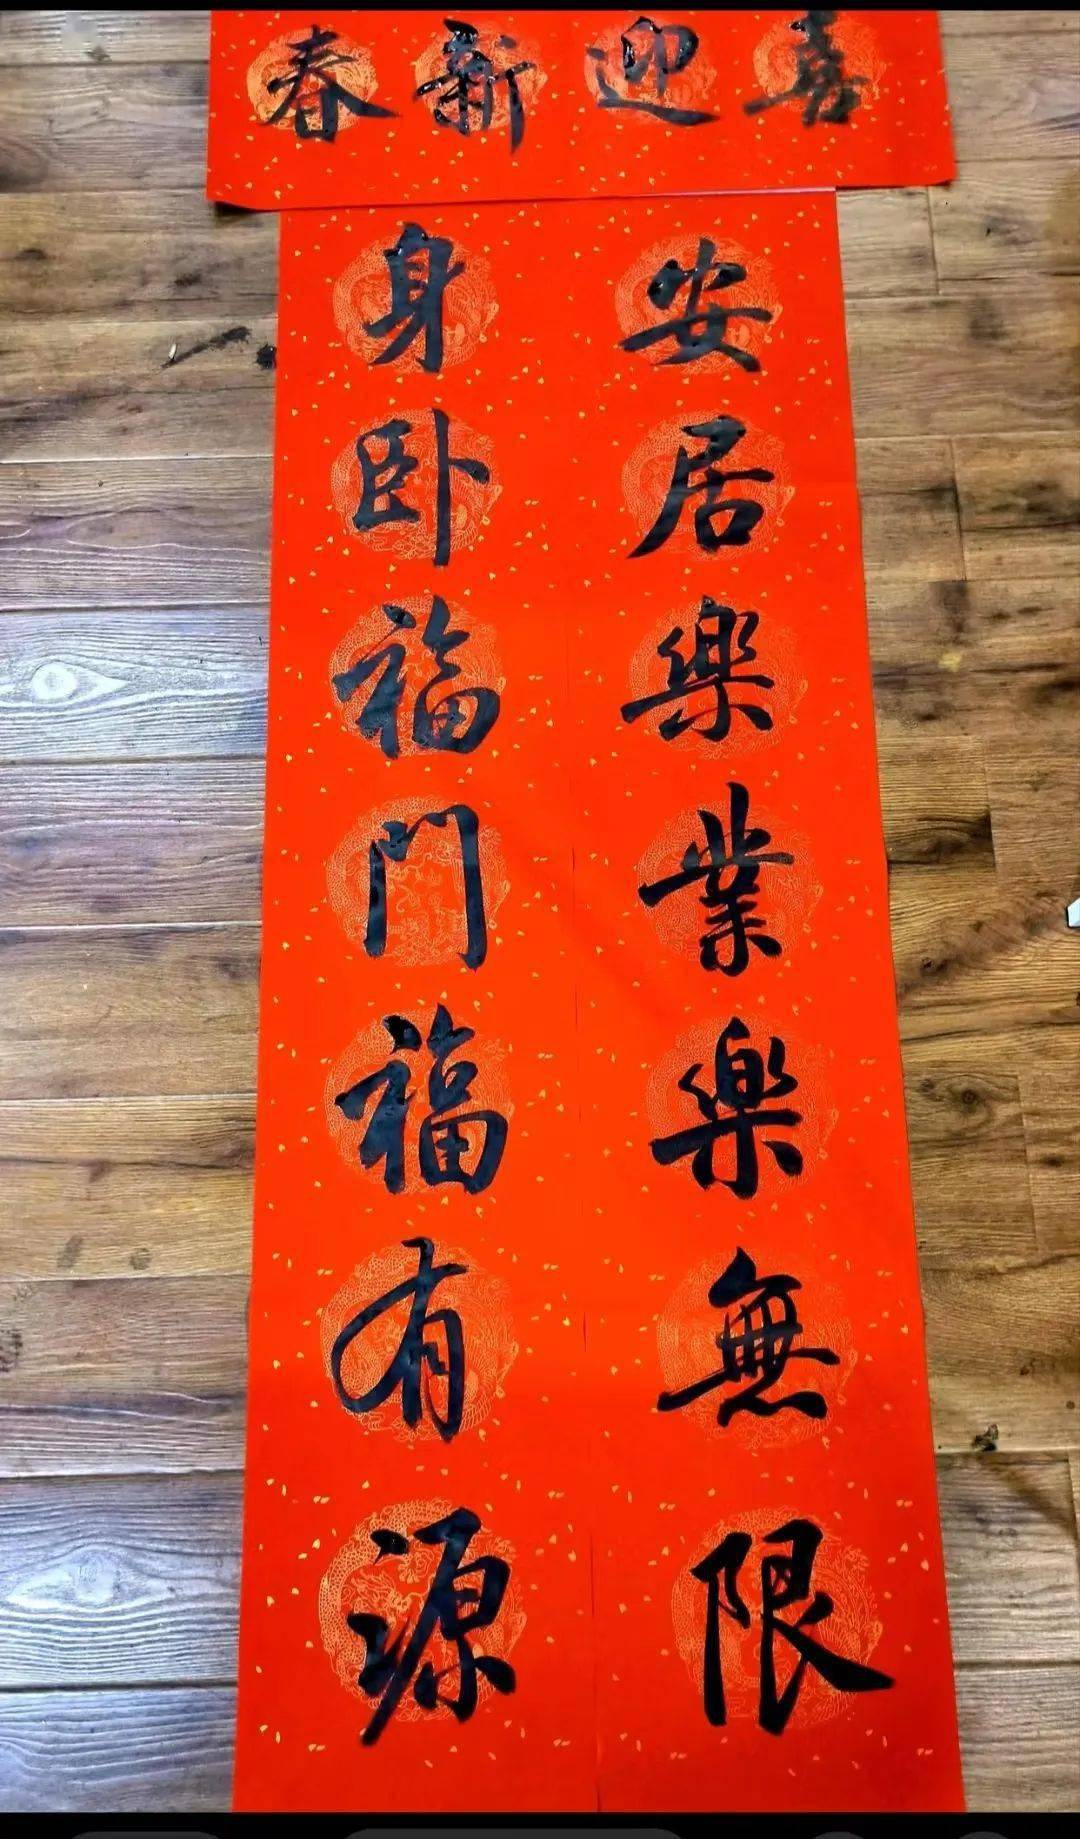 喜迎新春
安居樂業樂無限
身卧福門福有源